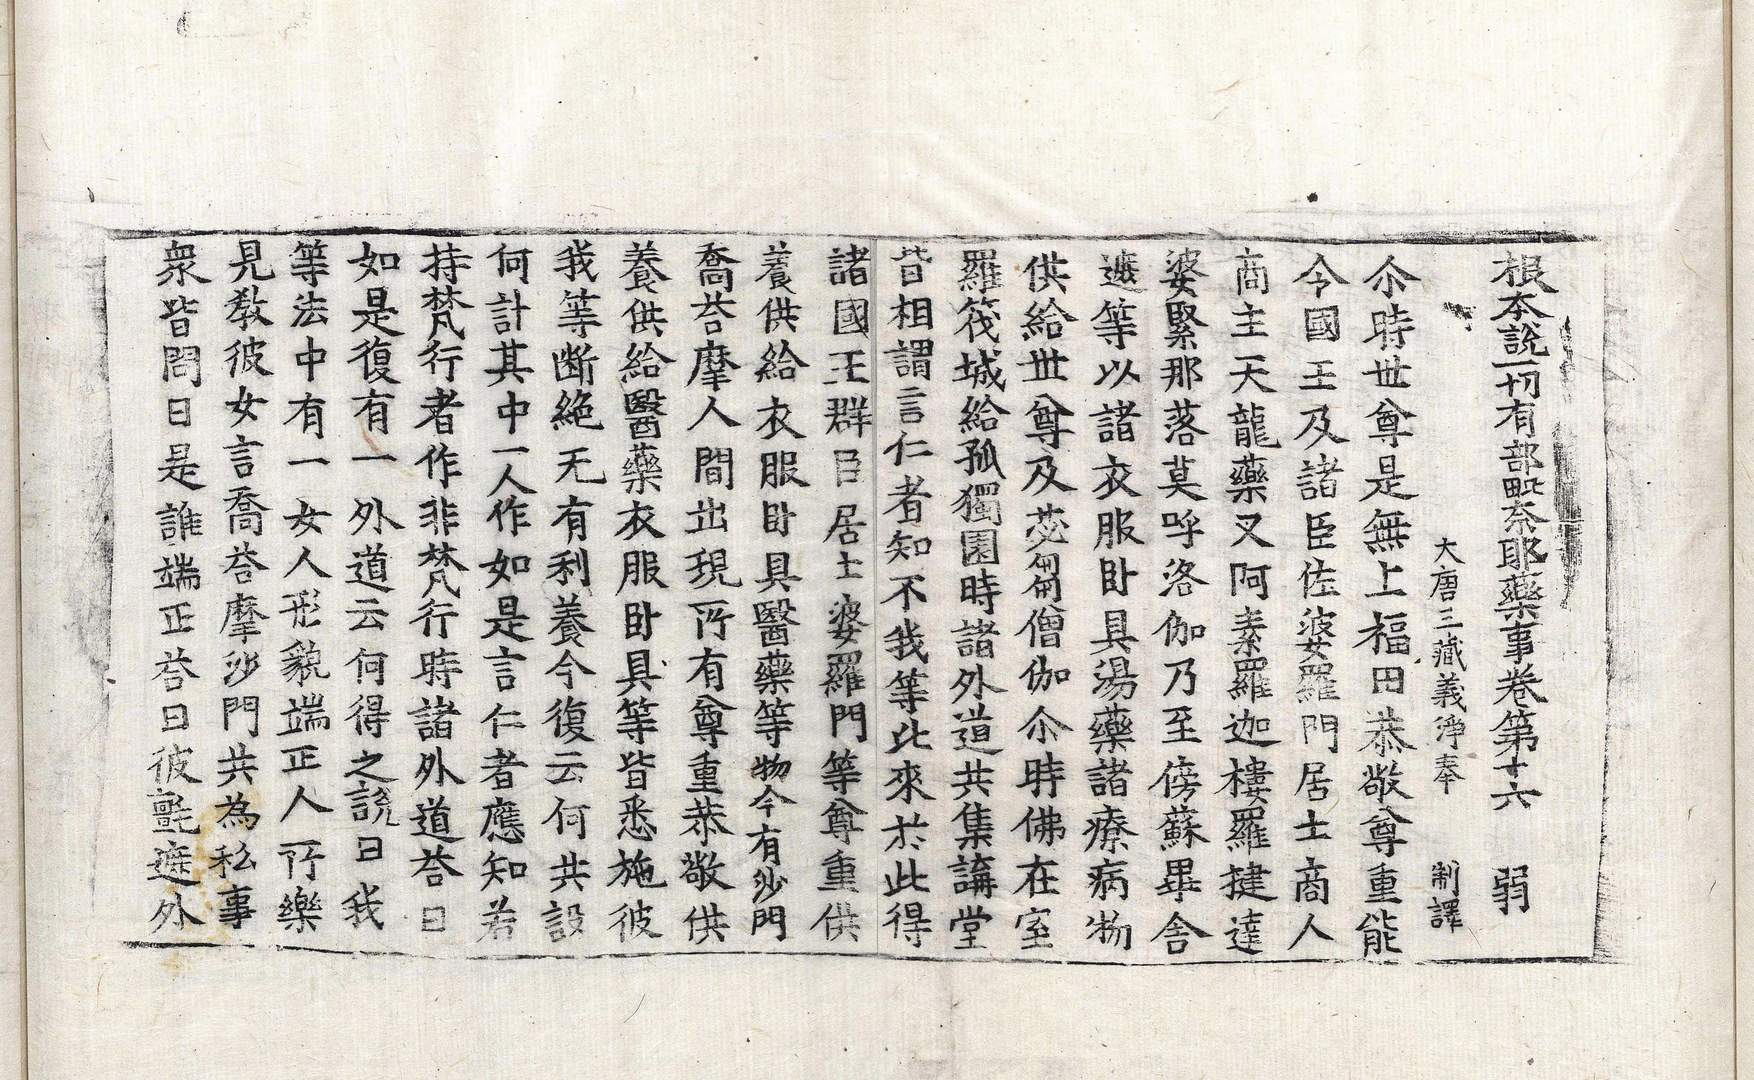 根本說一切有部毗奈耶藥事卷第十六　弱
大唐三藏義淨奉　制譯
尒時世尊是無上福田恭敬尊重能
令國王及諸臣佐婆羅門居士商人
商主天龍藥叉阿素羅迦樓羅揵達
婆緊那落莫呼洛伽乃至傍蘇畢舍
遮等以諸衣服卧具湯藥諸療病物
供給世尊及苾芻僧伽尒時佛在室
羅筏城給孤獨園時諸外道共集講堂
皆相謂言仁者知不我等此來於此得
諸國王群臣居士婆羅門等尊重供
養供給衣服卧具醫藥等物今有沙門
喬荅摩人間出現所有尊重恭敬供
養供給醫藥衣服卧具等皆悉施彼
我等断絶无有利養今復云何共設
何計其中一人作如是言仁者應知若
持梵行者作非梵行時諸外道荅曰
如是復有一外道云何得之說曰我
等法中有一女人形貌端正人所樂
見教彼女言喬荅摩沙門共為私事
衆皆問曰是誰端正荅曰彼氈遮外